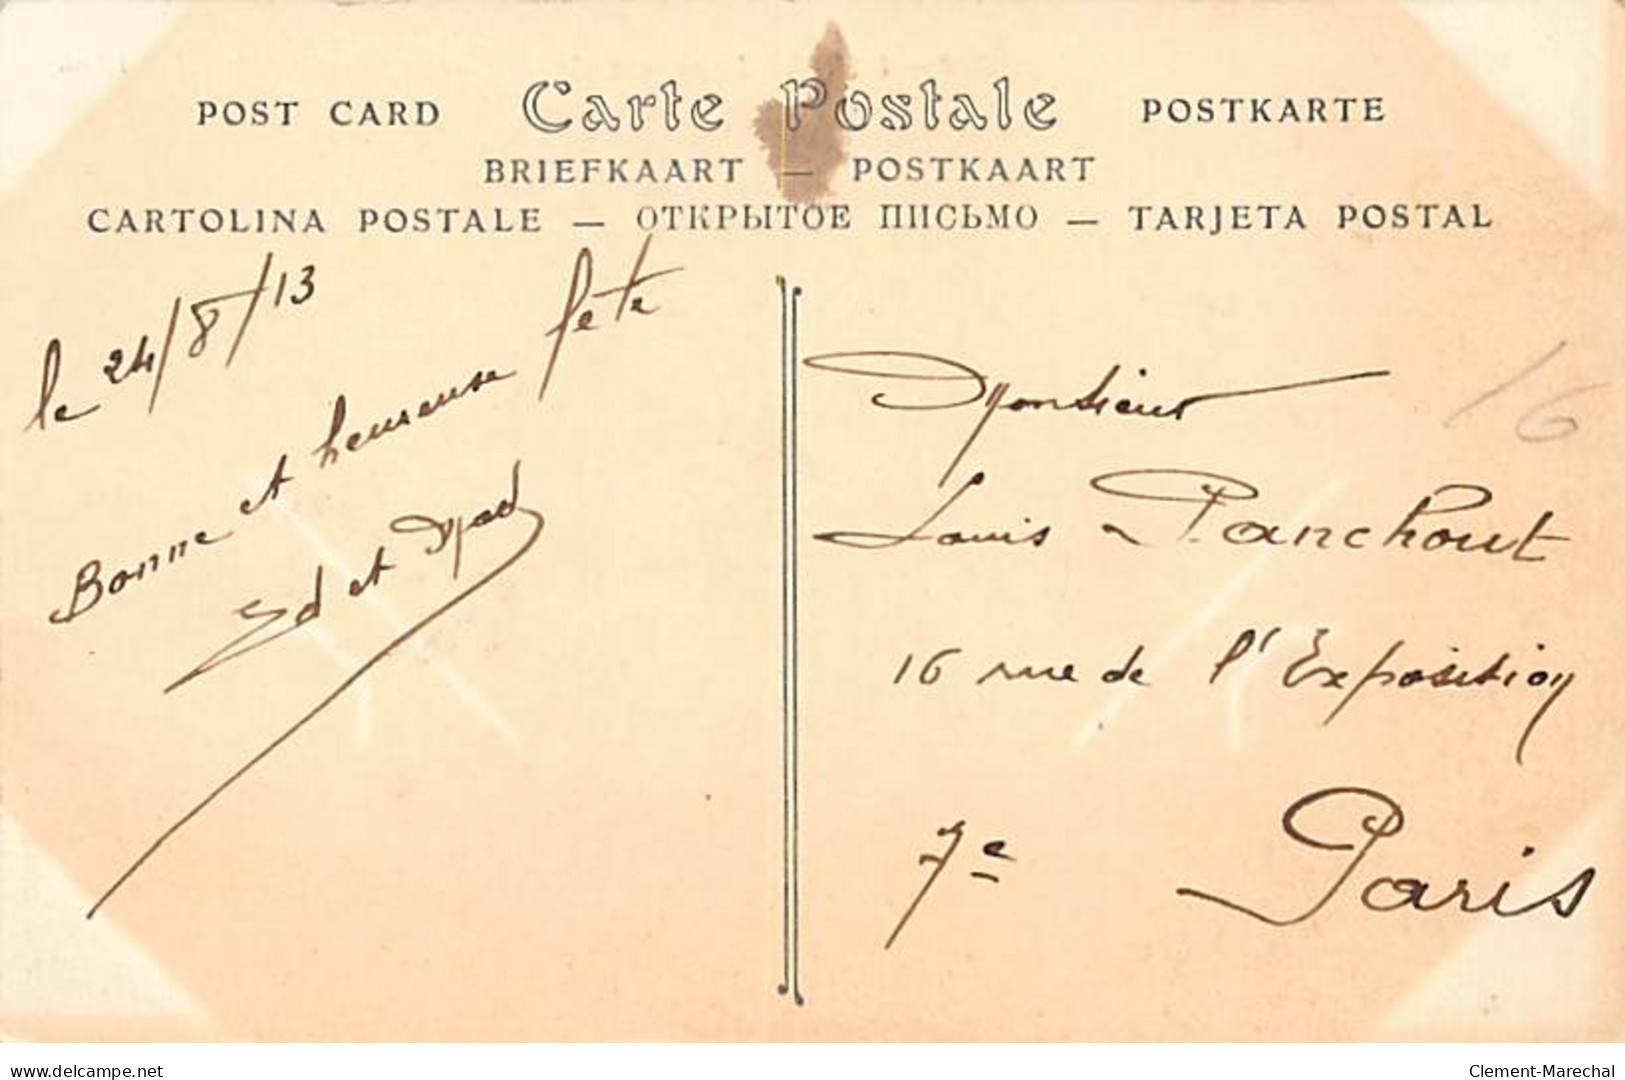 POST CARD Carte Postale POSTKARTE
BRIEFKAART — POSTKAART
CARTOLINA POSTALE — ОТКРЫТОЕ ПИСЬМО — TARJETA POSTAL
le 24/8/13
Bonne et heureuse fete
Ed et Mad
Monsieur
Louis Panchout
16 rue de l'Exposition
7e Paris
16
www.delcampe.net
Clement-Marechal